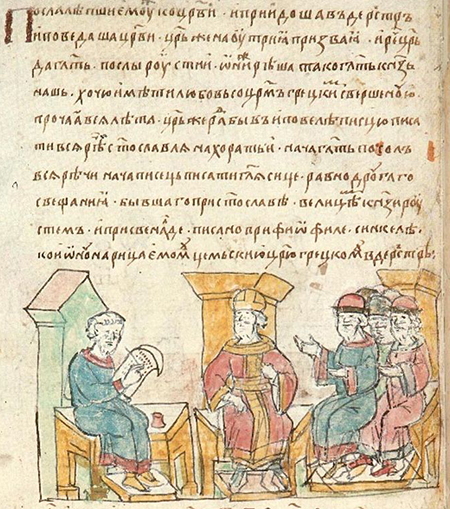 Посла лѣпшие моу ко цр҃ви · и приидоша въ дерестръ
и поведаша цр҃ви · цр҃ь же на оутриꙗ призва ꙗ · и рече цр҃ь
да гл҃ть послы роустии · ѡни же рѣша тако гл҃ть кн҃зь
нашь · хочю имѣти любовь со цр҃мъ грецкимъ свершеноую
прочаꙗ всѧ лѣта · цр҃ь же ра бывъ и повелѣ писцю писа
ти всѧ рѣчи с҃тославлѧ на хоратью · нача гл҃ать посолъ
всѧ рѣчи · нача писець писати гл҃ѧ сице · равно дроугаго
свещаниꙗ · бывшаго при с҃тославе · велицемь кн҃зи роу
стемъ · и при свенаде · писано при фиѡфиле · синкелѣ ·
ко иѡноу нарицаемомоу цемьскию цр҃ю грецкомоу в дерестрѣ